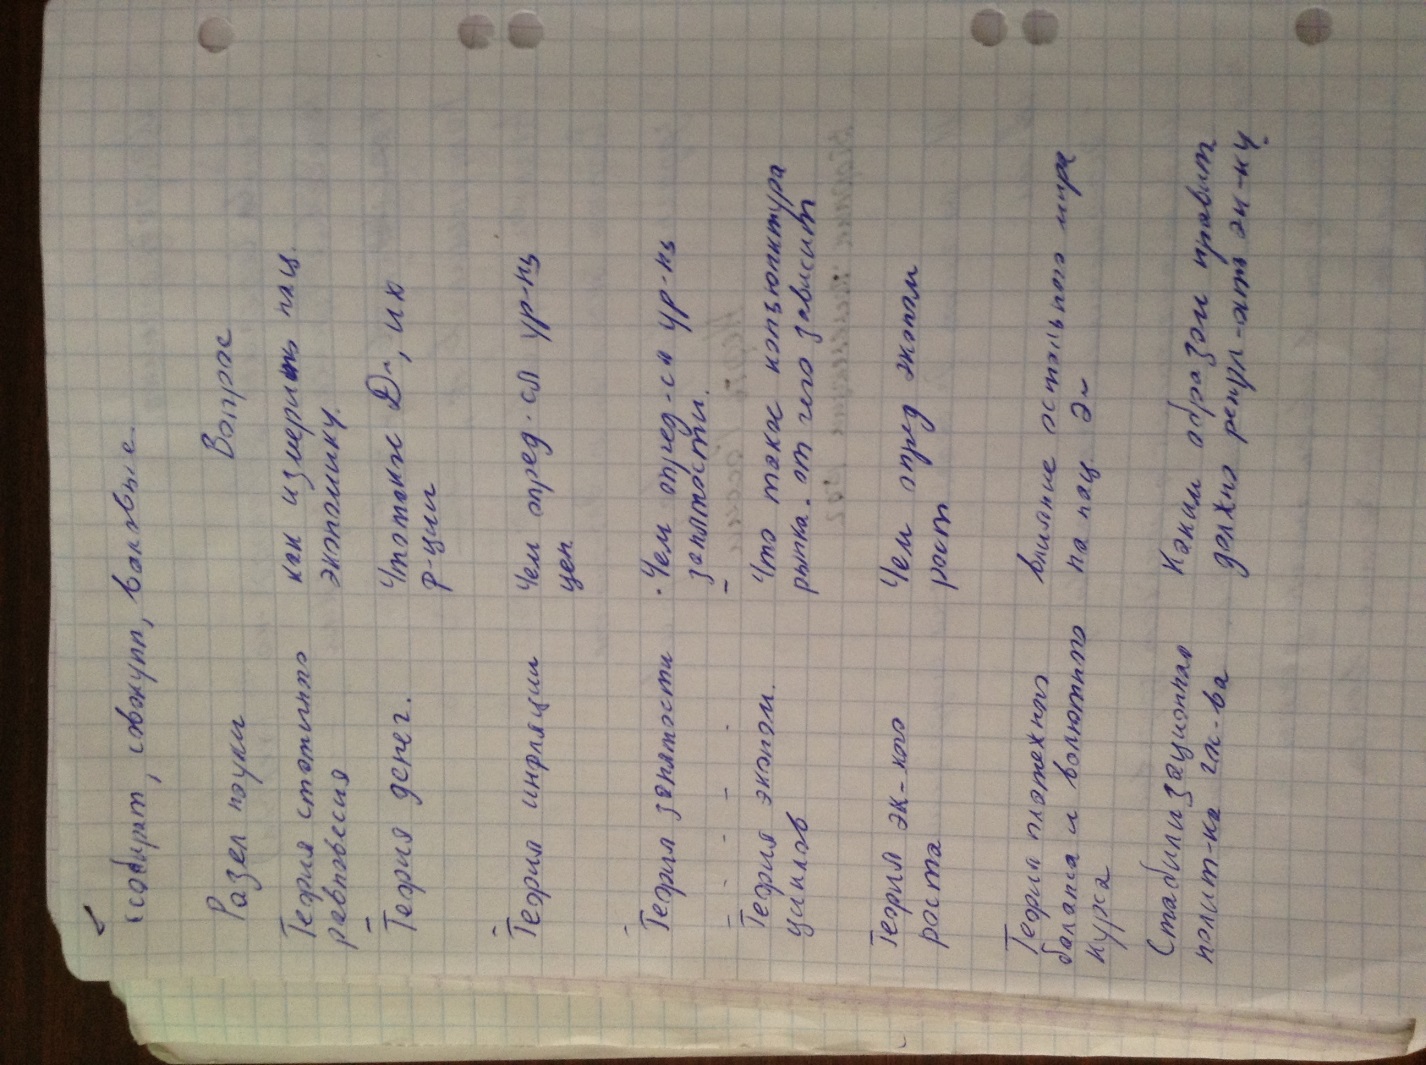 собират, совокупн, валовые.
Разел науки Вопрос
Теория статичного как измерить нац.
равновесия экономику.
Теория денег. Что такое D~, их
р-ции
Теория инфляции Чем опред-ся ур-нь
цен
Теория занятости Чем опред-ся ур-нь
занятости.
Теория эконом. Что такое конъюнктура
циклов рынка. от чего зависит
Теория эк-кого Чем опред эконом
роста рост
Теория платежного влияние остального мира
баланса и валютного на нац. Э~
курса
Стабилизационная Каким образом правит
полит-ка гос-ва должно регул-ать эк-ку